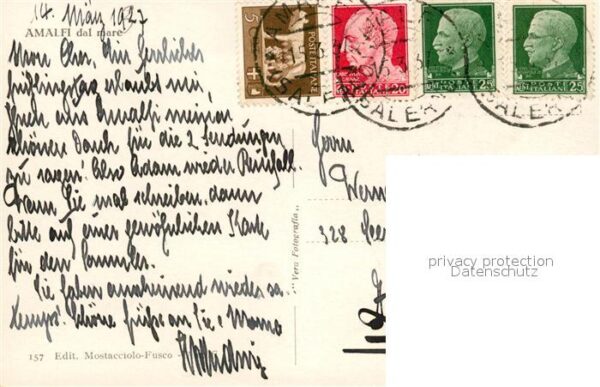 14. März 1927
AMALFI dal mare
Mein Lieber, ein herrlicher
Frühlingstag erlaubt mir,
Ihnen aus Amalfi meinen
schönen Dank für die 2 Sendungen
zu sagen! Also Adam wieder
Wenn Sie mal schreiben, dann
bitte auf einer gewöhnlichen Karte
für den Sammler.
Sie haben anscheinend wieder
Schöne Grüße an Sie & Mama
157 Edit. Mostacciolo-Fusco
"Vera Fotografia"
Herrn
Wern
328
5
+
POSTE ITALIANE
20
25
POSTE ITALIANE
25
POSTE ITALIANE
SALERNO
privacy protection
Datenschutz